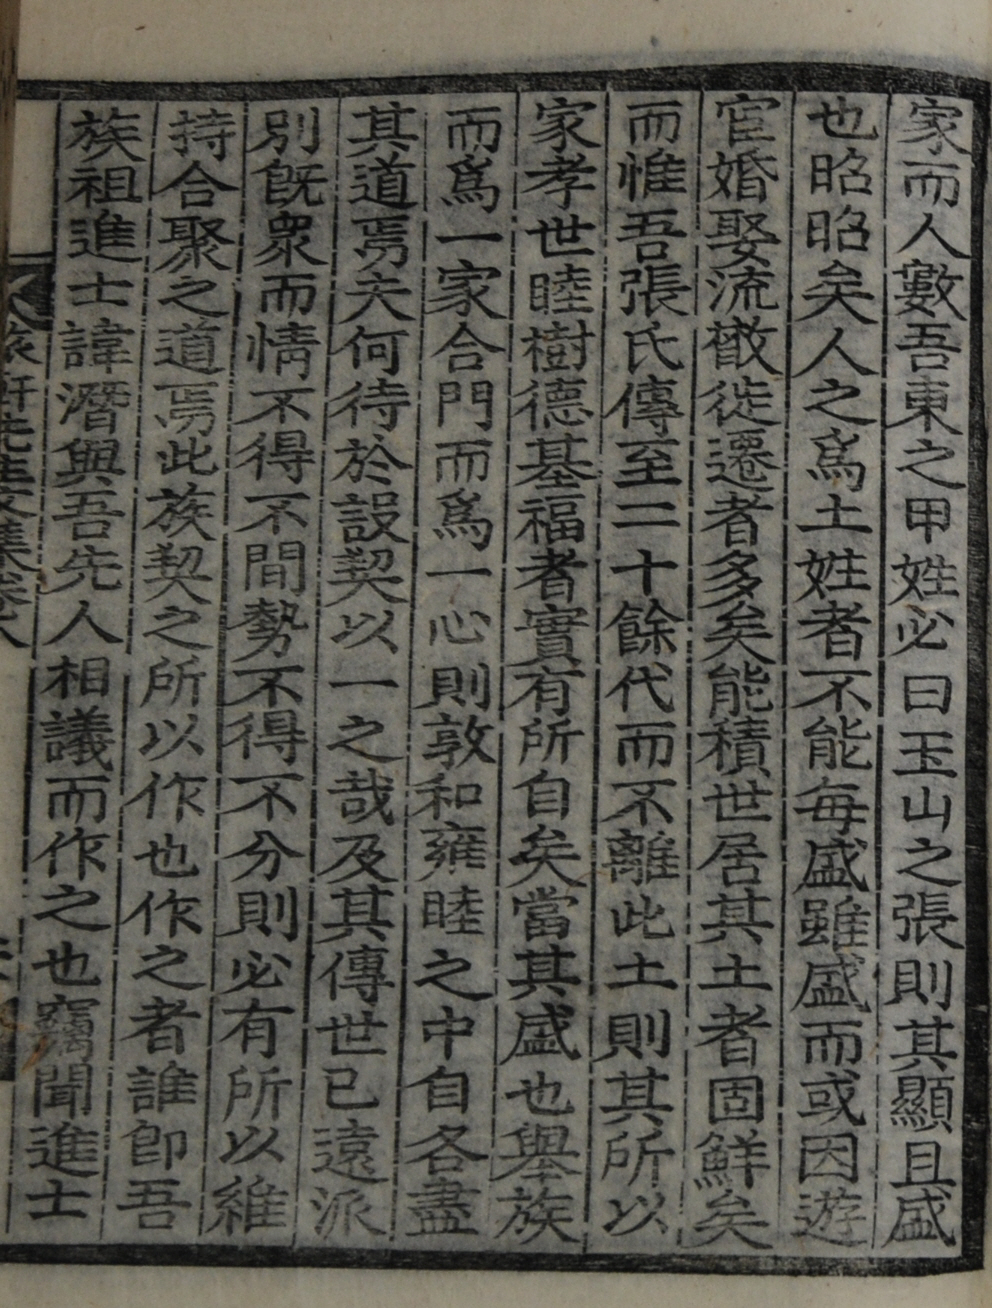 家而人數吾東之甲姓必曰玉山之張則其顯且盛
也昭昭矣人之爲土姓者不能每盛雖盛而或因遊
宦婚娶流散徙遷者多矣能積世居其土者固鮮矣
而惟吾張氏傳至二十餘代而不離此土則其所以
家孝世睦樹德基福者實有所自矣當其盛也擧族
而爲一家合門而爲一心則敦和雍睦之中自各盡
其道焉夫何待於設契以一之哉及其傳世已遠派
別旣衆而情不得不間勢不得不分則必有所以維
持合聚之道焉此族契之所以作也作之者誰卽吾
族祖進士諱潛與吾先人相議而作之也竊聞進士
旅軒先生文集卷八